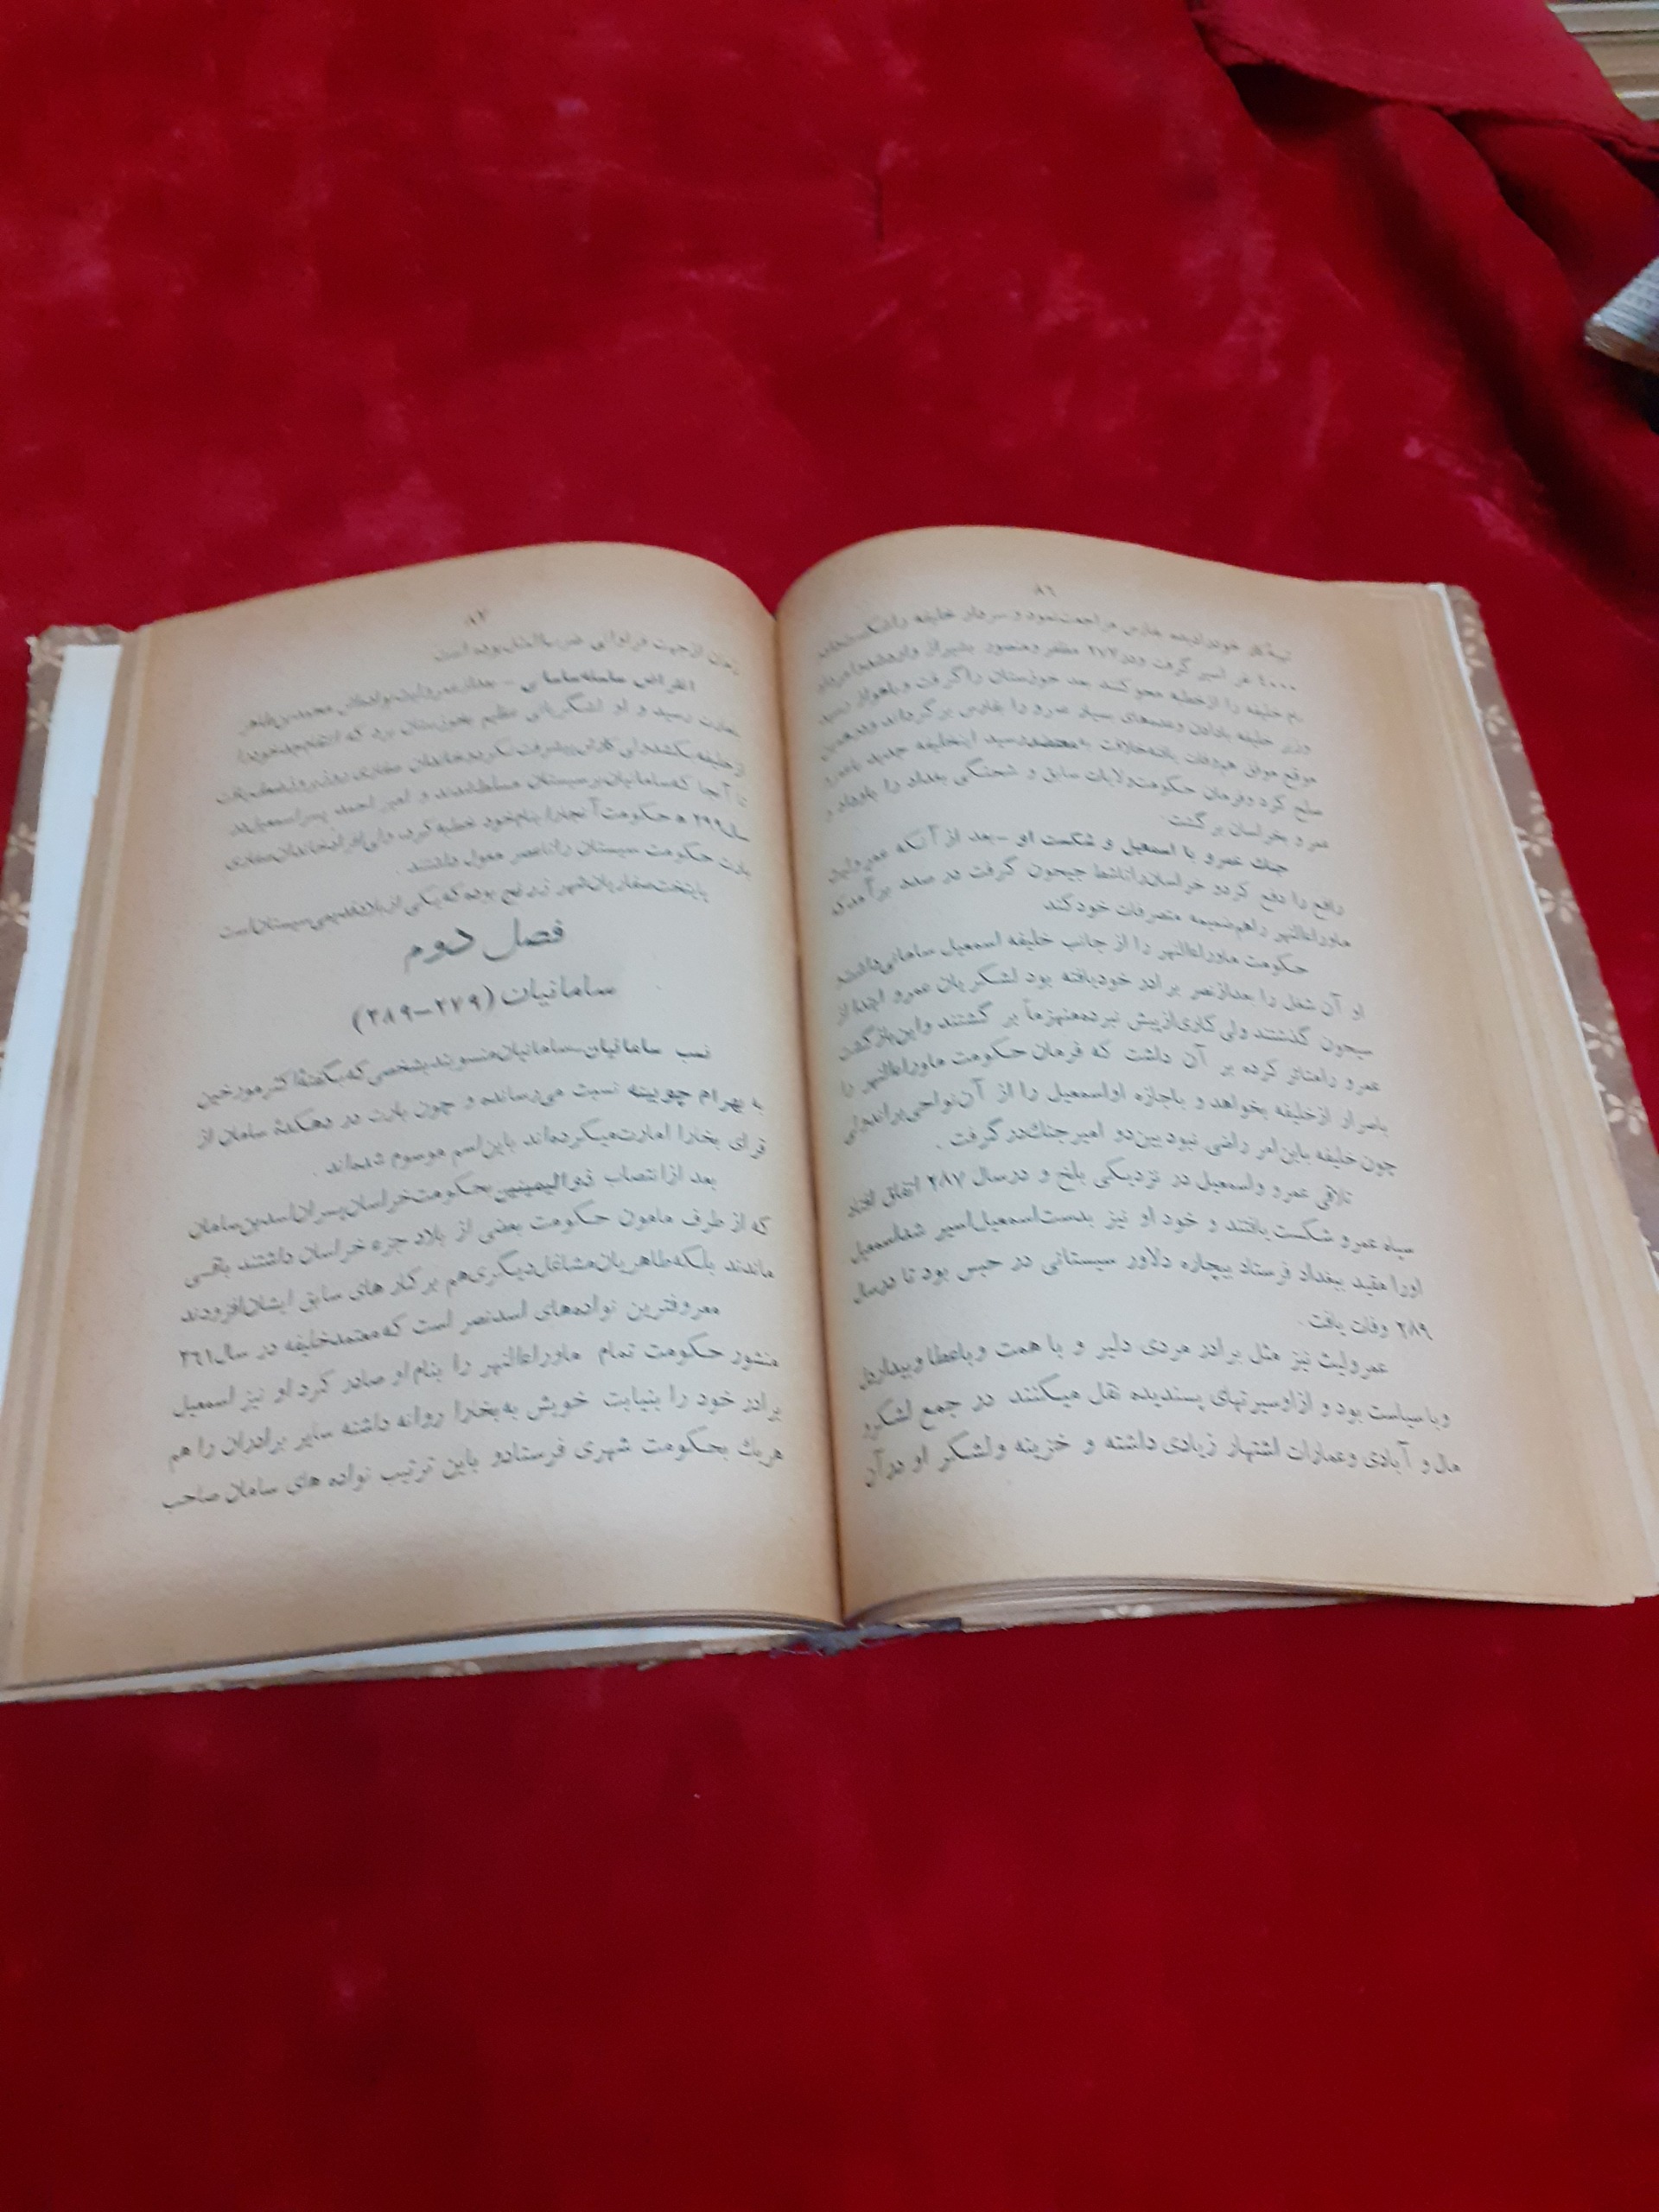 ۸٦
نیمهٔ کار خود را دیده بفارس مراجعت نمود و سردار خلیفه را شکست
٤٠٠٠ نفر اسیر گرفت و در ۲۷٤ مظفر و منصور بشیراز وارد شد و امر داد
نام خلیفه را از خطبه محو کنند بعد خوزستان را گرفت و باهواز رسید
وزیر خلیفه بادادن وعده‌های بسیار عمرو را بفارس برگرداند و در همین
موقع موفق هم وفات یافته خلافت به معتضد رسید این خلیفه جدید با عمرو
صلح کرد و فرمان حکومت ولایات سابق و شحنگی بغداد را باو داد و
عمرو بخراسان برگشت.
جنك عمرو با اسمعیل و شکست او - بعد از آنکه عمرولیث
رافع را دفع کرد و خراسان را تا شط جیحون گرفت در صدد بر آمد که
ماوراءالنهر را هم ضمیمه متصرفات خود کند
حکومت ماوراءالنهر را از جانب خلیفه اسمعیل سامانی داشت و
او آن شغل را بعد از نصر برادر خود یافته بود لشکریان عمرو ابتدا از
سیحون گذشتند ولی کاری از پیش نبرده منهزماً بر گشتند و این بازگشت
عمرو را متاثر کرده بر آن داشت که فرمان حکومت ماوراءالنهر را
باصرار از خلیفه بخواهد و باجازه او اسمعیل را از آن نواحی براند ولی
چون خلیفه باین امر راضی نبود بین دو امیر جنك در گرفت .
تلاقی عمرو و اسمعیل در نزدیکی بلخ و در سال ۲۸۷ اتفاق افتاد
سپاه عمرو شکست یافتند و خود او نیز بدست اسمعیل اسیر شد اسمعیل
او را مقید ببغداد فرستاد بیچاره دلاور سیستانی در حبس بود تا در سال
۲۸۹ وفات یافت .
عمرولیث نیز مثل برادر مردی دلیر و با همت و با عطا و بیدار دل
و با سیاست بود و از او سیرتهای پسندیده نقل میکنند در جمع لشکر و
مال و آبادی و عمارات اشتهار زیادی داشته و خزینه و لشگر او در آن
۸۷
زمان از جهت فراوانی ضرب المثل بوده است
انقراض سلسله - بعد از عمرولیث نواده‌اش محمدبن طاهر
بامارت رسید و او لشگریانی عظیم بخوزستان برد که انتقام جد خود را
از خلیفه بکشد ولی کارش پیشرفت نکرد و خاندان صفاری روز بروز ضعف یافت
تا آنجا که سامانیان بر سیستان مسلط شدند و امیر احمد پسر اسمعیل در
سال ۲۹۹ حکومت آنجا را بنام خود خطبه کرد، ولی افراد خاندان صفاری
بازت حکومت سیستان را تا عصر مغول داشتند .
پایتخت صفاریان شهر زرنج بوده که یکی از بلاد قدیمی سیستان است
فصل دوم
سامانیان (۲۷۹-۳۸۹)
نسب سامانیان - سامانیان منسوبند بشخصی که بگفتهٔ اکثر مورخین
به بهرام چوبینه نسبت می‌رسانده و چون بازت در دهکدهٔ سامان از
قرای بخارا امارت میکرده‌اند باین اسم موسوم شده‌اند .
بعد از انتصاب ذوالیمینین بحکومت خراسان پسران اسدبن سامان
که از طرف مامون حکومت بعضی از بلاد جزء خراسان داشتند باقی
ماندند بلکه طاهریان مشاغل دیگری هم بر کار های سابق ایشان افزودند
معروفترین نواده‌های اسد نصر است که معتمد خلیفه در سال ۲٦۱
منشور حکومت تمام ماوراءالنهر را بنام او صادر کرد او نیز اسمعیل
برادر خود را بنیابت خویش به بخارا روانه داشته سایر برادران را هم
هریك بحکومت شهری فرستاد و باین ترتیب نواده های سامان صاحب